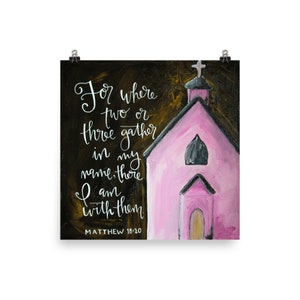 For where
two or
three gather
in my
name, there
I am
with them
MATTHEW 18:20